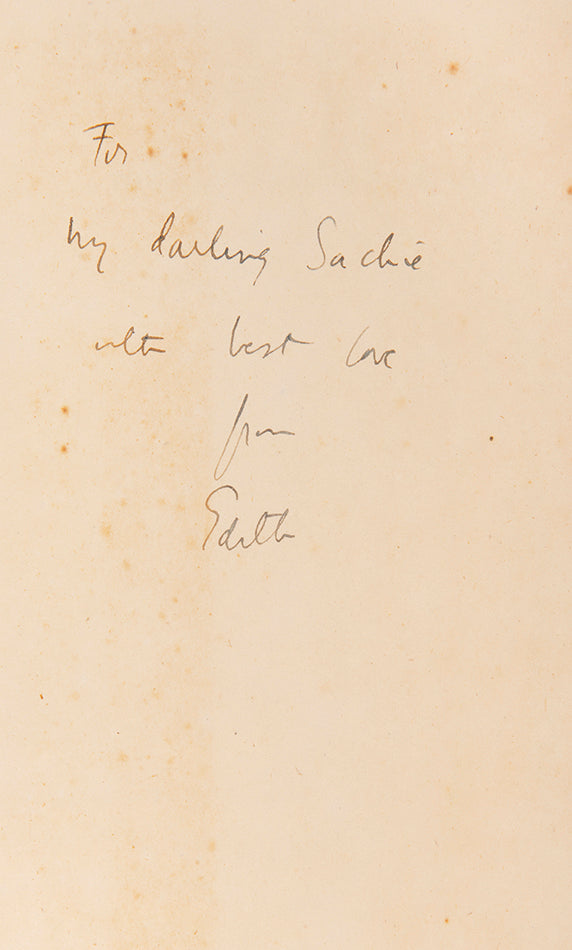 For
my darling Sachie
with best love
from
Edith